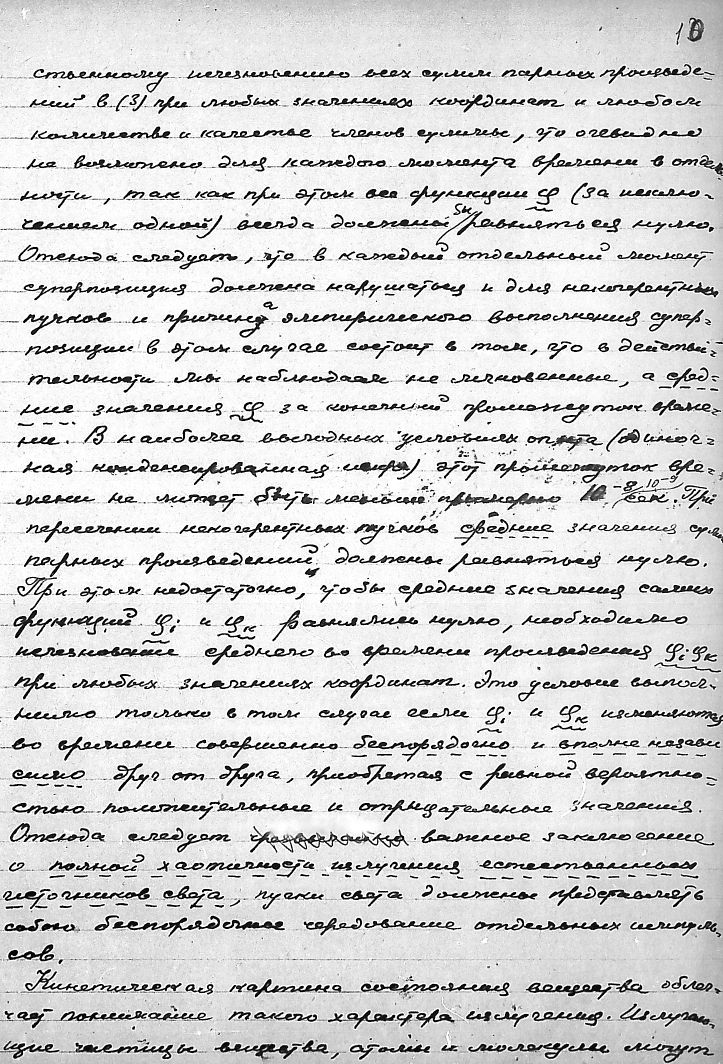 10
ственному исчезновению всех сумм парных произведе-
ний в (3) при любых значениях координат и любом
количестве и качестве членов суммы, что очевидно
не возможно для каждого момента времени в отдель-
ности, так как при этом все функции φ (за исклю-
чением одной) всегда должны бы равняться нулю.
Отсюда следует, что в каждый отдельный момент
суперпозиция должна нарушаться и для некогерентных
пучков и причина эмпирического выполнения супер-
позиции в этом случае состоит в том, что в действи-
тельности мы наблюдаем не мгновенные, а сред-
ние значения φ за конечный промежуток време-
ни. В наиболее выгодных условиях опыта (одиноч-
ная конденсированная искра) этот промежуток вре-
мени не может быть меньше примерно 10⁻⁸/10⁻⁹ сек. При
пересечении некогерентных пучков средние значения сумм
парных произведений должны равняться нулю.
При этом недостаточно, чтобы средние значения самих
функций φi и φk равнялись нулю, необходимо
исчезновение среднего во времени произведения φi φk
при любых значениях координат. Это условие выпол-
нимо только в том случае если φi и φk изменяются
во времени совершенно беспорядочно и вполне незави
симо друг от друга, приобретая с равной вероятно-
стью положительные и отрицательные значения.
Отсюда следует важное заключение
о полной хаотичности излучения естественных
источников света, пучки света должны представлять
собою беспорядочное чередование отдельных импуль-
сов.
Кинетическая картина состояния вещества облег-
чает понимание такого характера излучения. Излучаю-
щие частицы вещества, атомы и молекулы могут